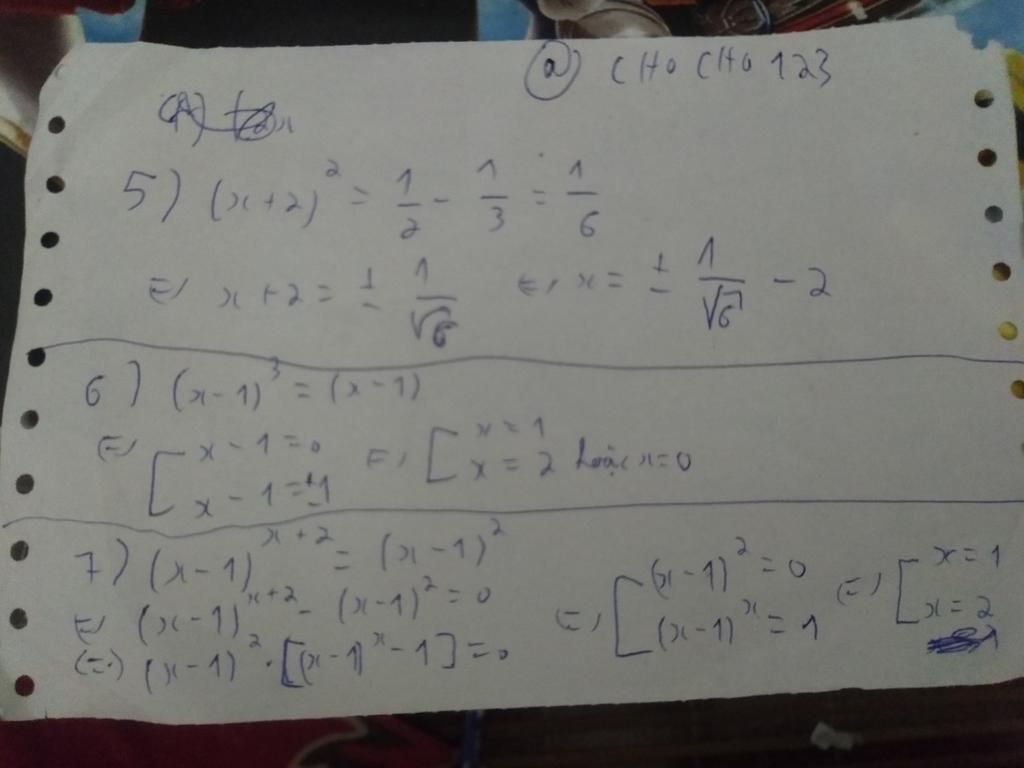 (a) CHO CHO 123
5) (x+2)² = 1/2 - 1/3 = 1/6
⇔ x+2 = ± 1/√6 ⇔ x = ± 1/√6 - 2
6) (x-1)³ = (x-1)
⇔ [ x-1=0 ⇔ [ x=1
x-1=±1 x=2 hoặc x=0
7) (x-1)^(x+2) = (x-1)²
⇔ (x-1)^(x+2) - (x-1)² = 0 ⇔ [ (x-1)² = 0 ⇔ [ x=1
(x-1)^x = 1 x=2
⇔ (x-1)² · [(x-1)^x - 1] = 0